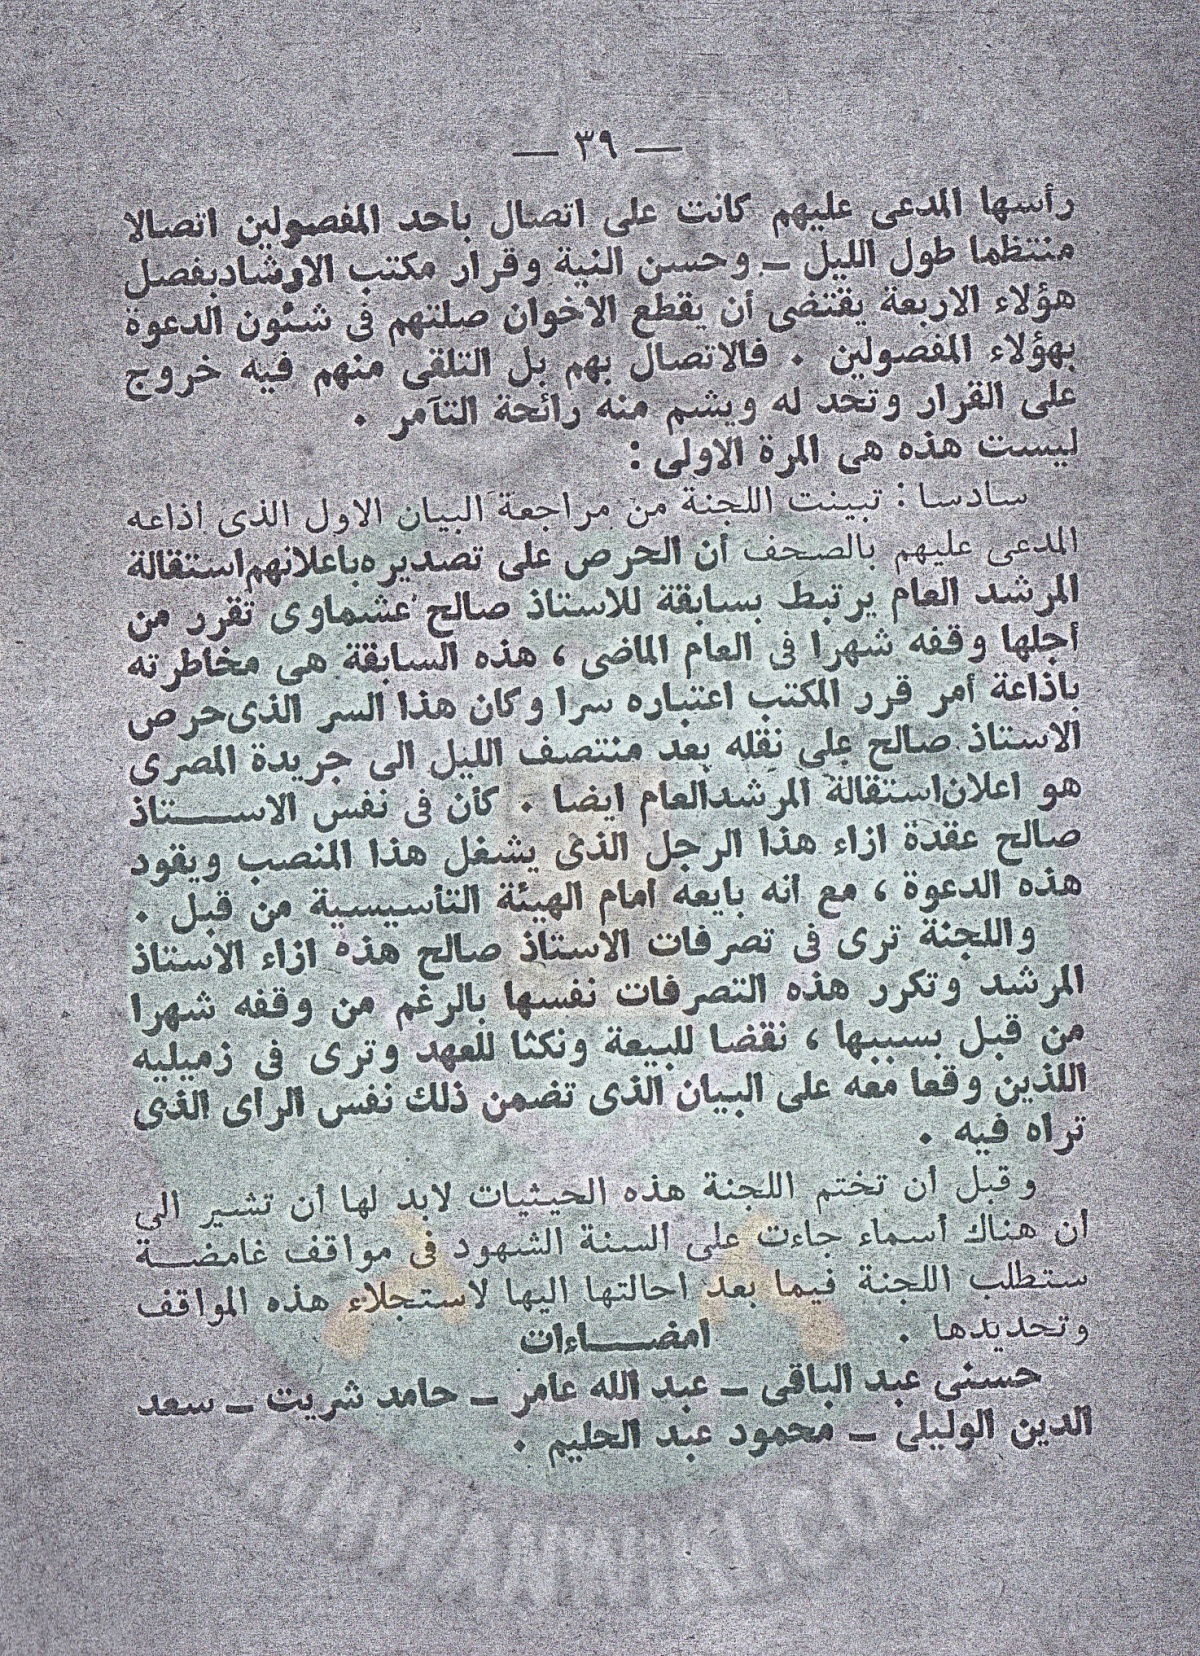 — ٣٩ —
رأسها المدعى عليهم كانت على اتصال باحد المفصولين اتصالا
منتظما طول الليل – وحسن النية وقرار مكتب الارشاد بفصل
هؤلاء الاربعة يقتضى أن يقطع الاخوان صلتهم فى شئون الدعوة
بهؤلاء المفصولين . فالاتصال بهم بل التلقى منهم فيه خروج
على القرار وتحد له ويشم منه رائحة التآمر .
ليست هذه هى المرة الاولى :
سادسا : تبينت اللجنة من مراجعة البيان الاول الذى اذاعه
المدعى عليهم بالصحف أن الحرص على تصديره باعلانهم استقالة
المرشد العام يرتبط بسابقة للاستاذ صالح عشماوى تقرر من
أجلها وقفه شهرا فى العام الماضى ، هذه السابقة هى مخاطرته
باذاعة أمر قرر المكتب اعتباره سرا وكان هذا السر الذى حرص
الاستاذ صالح على نقله بعد منتصف الليل الى جريدة المصرى
هو اعلان استقالة المرشد العام ايضا . كأن فى نفس الاستاذ
صالح عقدة ازاء هذا الرجل الذى يشغل هذا المنصب ويقود
هذه الدعوة ، مع انه بايعه امام الهيئة التأسيسية من قبل .
واللجنة ترى فى تصرفات الاستاذ صالح هذه ازاء الاستاذ
المرشد وتكرر هذه التصرفات نفسها بالرغم من وقفه شهرا
من قبل بسببها ، نقضا للبيعة ونكثا للعهد وترى فى زميليه
اللذين وقعا معه على البيان الذى تضمن ذلك نفس الراى الذى
تراه فيه .
وقبل أن تختم اللجنة هذه الحيثيات لابد لها أن تشير الى
أن هناك أسماء جاءت على السنة الشهود فى مواقف غامضة
ستطلب اللجنة فيما بعد احالتها اليها لاستجلاء هذه المواقف
وتحديدها .
امضاءات
حسنى عبد الباقى – عبد الله عامر – حامد شريت – سعد
الدين الوليلى – محمود عبد الحليم .